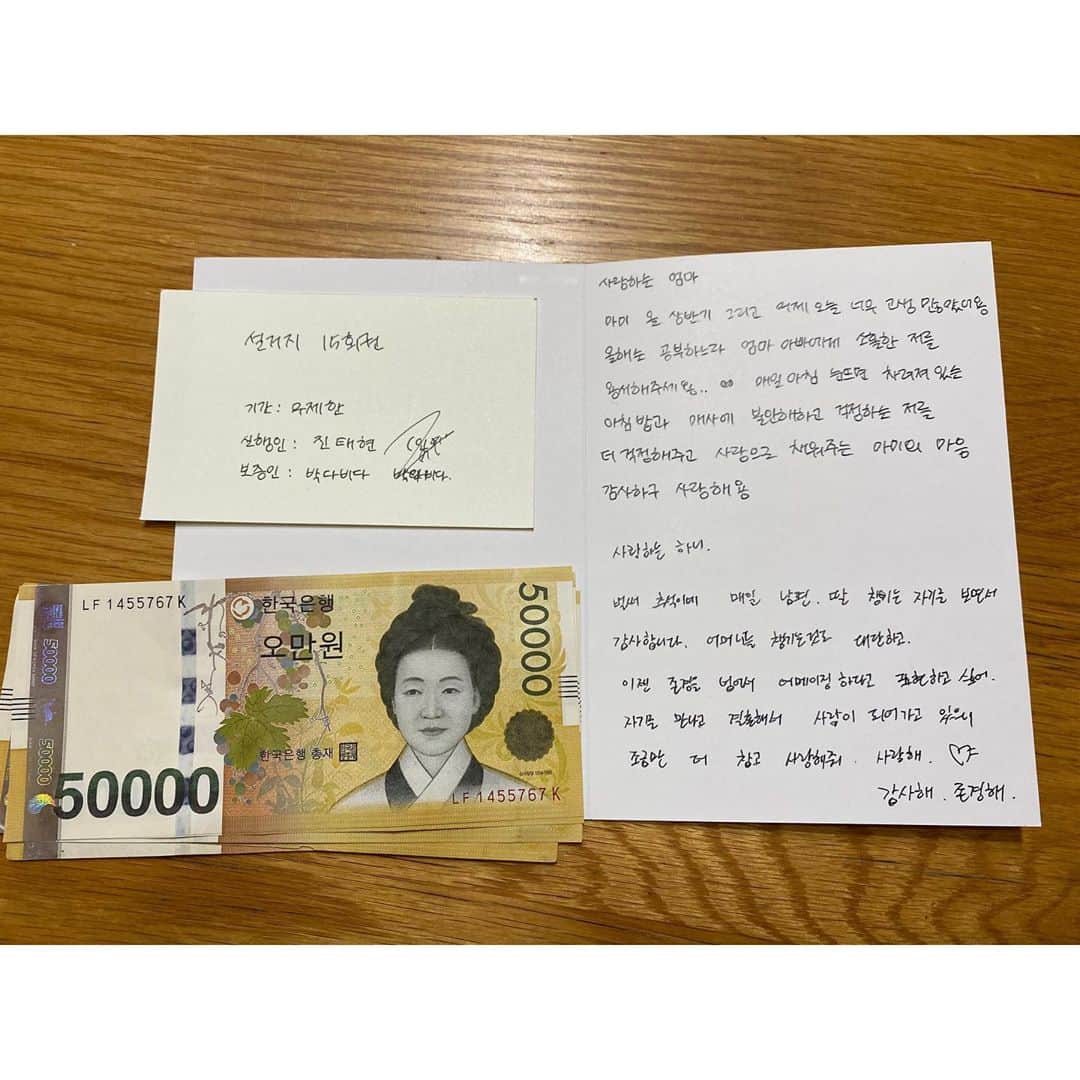 설거지 15회권
기간: 무제한
실행인: 진태현
보증인: 박다비다 박다비다.
사랑하는 엄마
올 상반기 그리고 어제 오늘 너무 고생 많았어용
올해는 공부하느라 엄마 아빠에게 소홀한 저를
용서해주세용.. 매일 아침 눈뜨면 차려져 있는
아침밥과 매사에 불안해하고 걱정하는 저를
더 걱정해주고 사랑으로 채워주는 마음
감사하구 사랑해용
사랑하는 허니.
벌써 추석이네 매일 남편. 딸 챙기는 자기를 보면서
감사합니다. 어머니를 챙기는것도 대단하고.
이젠 존경을 넘어서 어메이징 하다고 표현하고 싶어.
자기를 만나고 결혼해서 사람이 되어가고 있으니
조금만 더 참고 사랑해줘. 사랑해.
감사해. 존경해.
LF 1455767 K
한국은행
오만원
50000
한국은행 총재
LF 1455767 K
50000
50000
50000